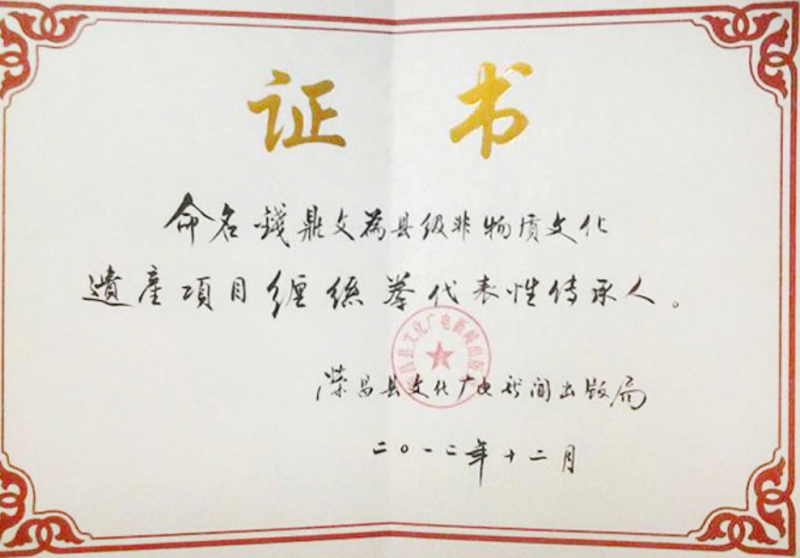 证书
命名钱鼎文为县级非物质文化
遗产项目缠丝拳代表性传承人。
荣昌县文化广电新闻出版局
荣昌县文化广电新闻出版局
二〇一二年十二月